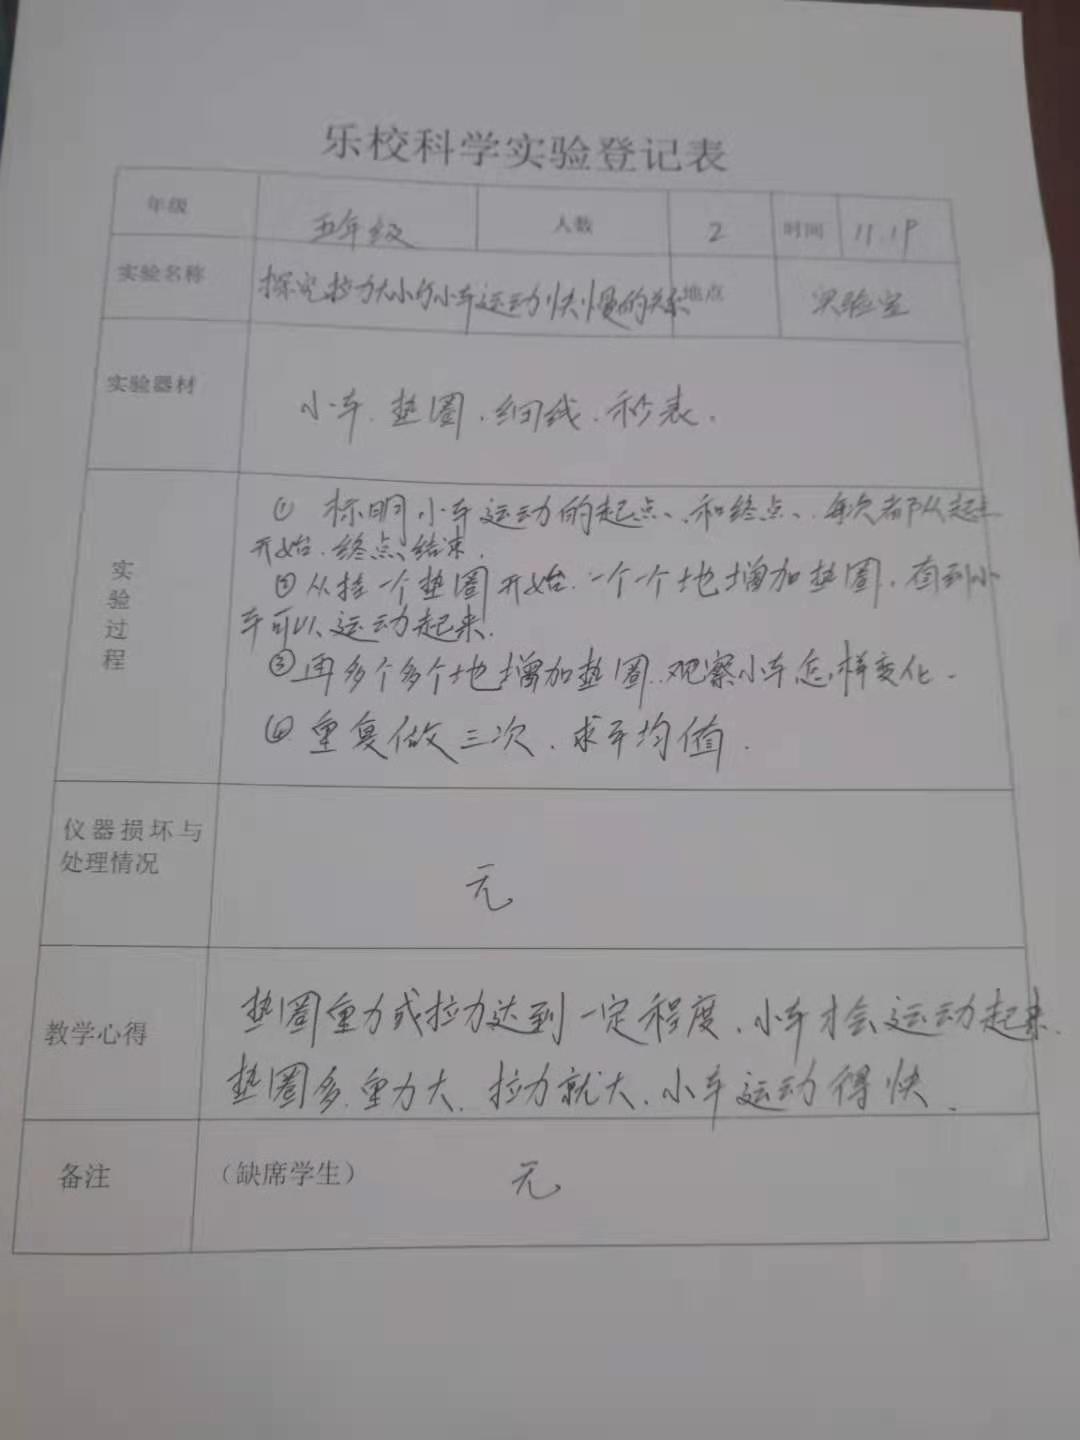 乐校科学实验登记表
年级 五年级 人数 2 时间 11.19
实验名称 探究拉力大小与小车运动快慢的关系 地点 实验室
实验器材 小车.垫圈.细线.秒表.
实验过程
① 标明小车运动的起点、和终点、每次都从起点
开始.终点结束.
②从挂一个垫圈开始.一个一个地增加垫圈.直到小
车可以运动起来.
③再多个多个地增加垫圈.观察小车怎样变化.
④重复做三次.求平均值.
仪器损坏与
处理情况
无
教学心得
垫圈重力或拉力达到一定程度.小车才会运动起来.
垫圈多.重力大.拉力就大.小车运动得快.
备注 （缺席学生） 无